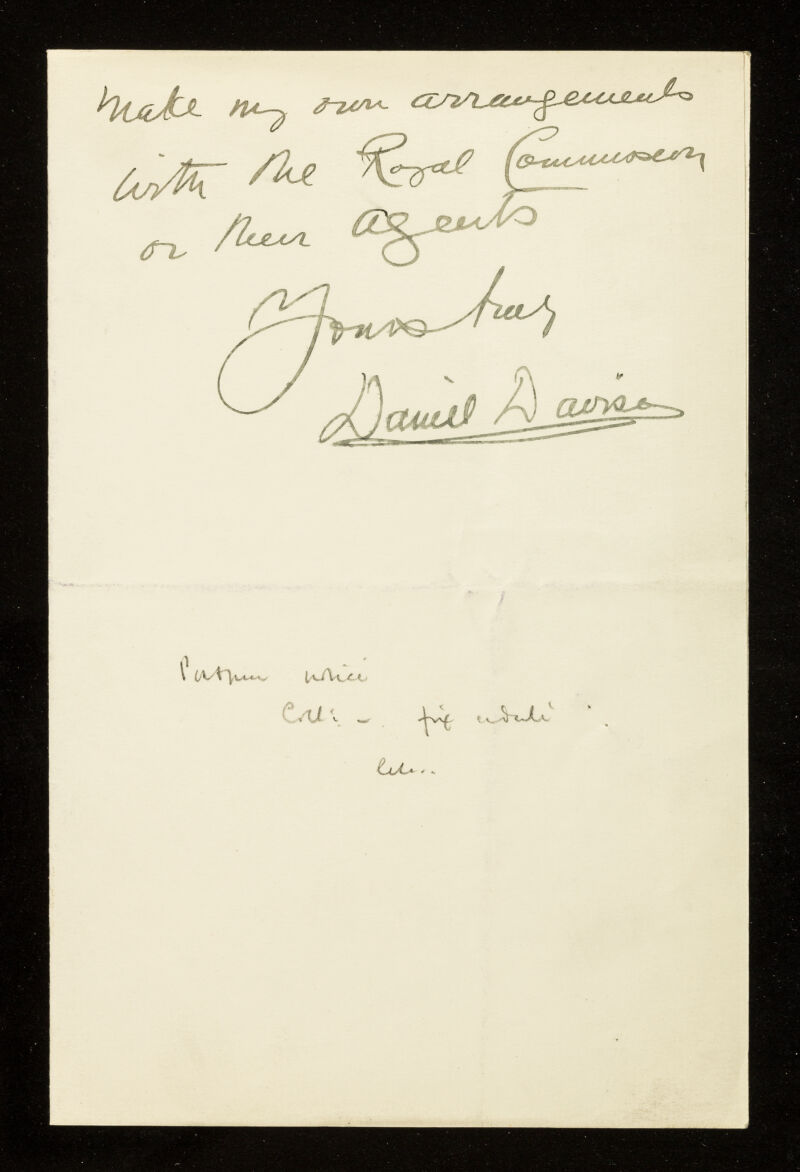 Make my own arrangements
with the Royal Commission
or their agents
Yours truly
Daniel Davison
notice
fix